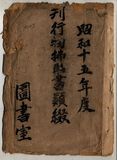 昭和十五年度
刊行物購買書類綴
圖書室